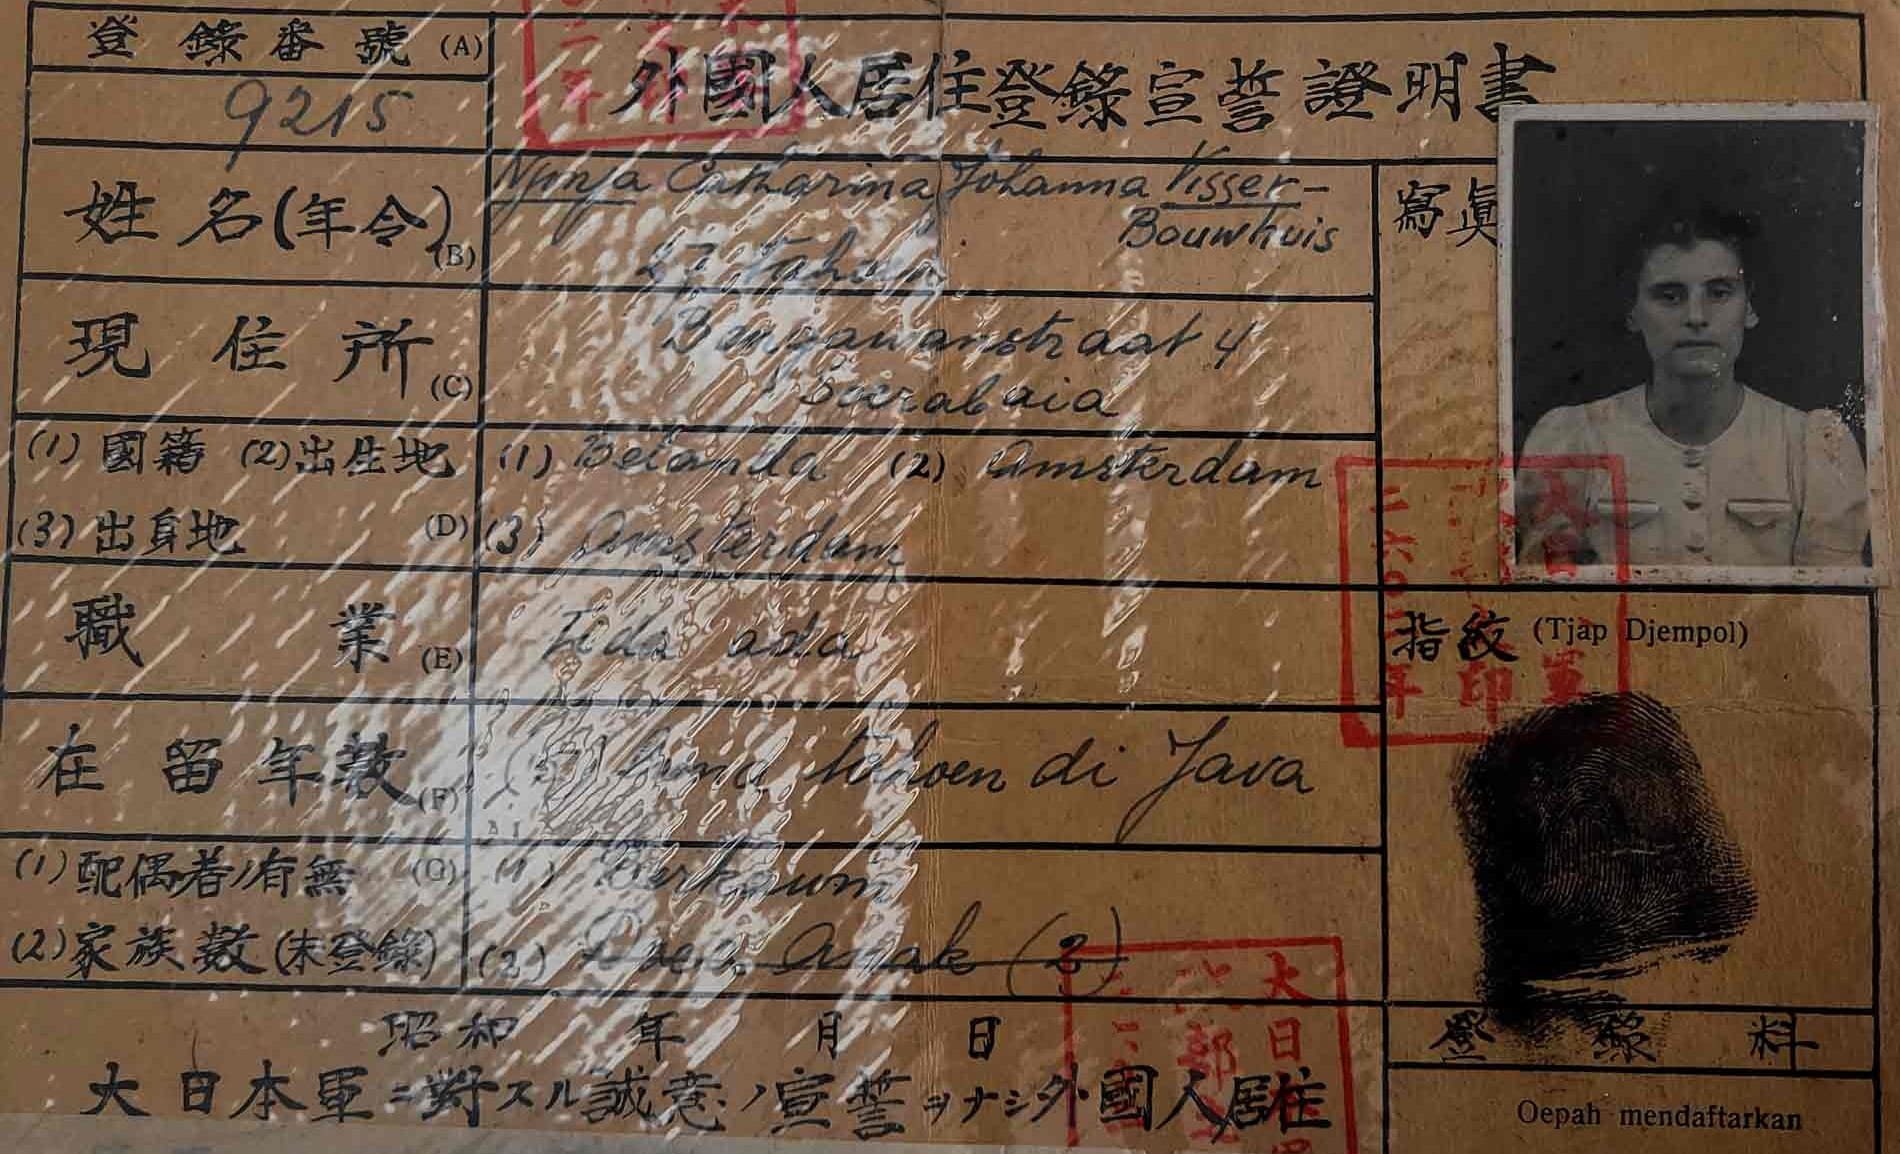 登錄番號 (A)
9215
外國人居住登錄宣誓證明書
姓名(年令) (B)
Njonja Catharina Johanna Visser-
Bouwhuis
27 tahun
寫眞
現住所 (C)
Bengawanstraat 4
Soerabaia
(1) 國籍 (2) 出生地
(3) 出身地 (D)
(1) Belanda (2) Amsterdam
(3) Amsterdam
職業 (E)
Tida ada
指紋 (Tjap Djempol)
在留年数 (F)
(5) lima tahoen di Java
(1) 配偶者ノ有無 (G)
(2) 家族数 (未登錄)
(1) Berkawin
(2) Doea Anak (2)
昭和 年 月 日
大日本軍ニ對スル誠意ノ宣誓ヲナシ外國人居住
登錄料
Oepah mendaftarkan